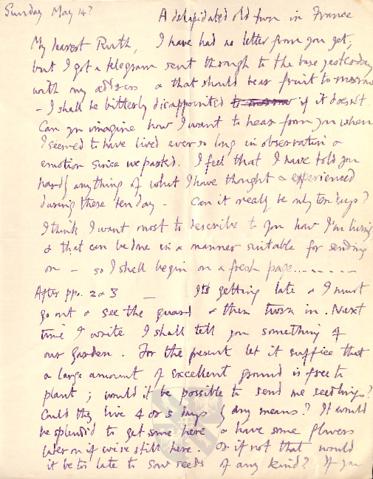 Sunday May 14?
A delapidated old farm in France
My dearest Ruth, I have had no letter from you yet,
but I got a telegram sent through to the base yesterday
with my address & that should bear fruit tomorrow
- I shall be bitterly disappointed if it doesn't.
Can you imagine how I want to hear from you when
I seemed to have lived ever so long in observation &
emotion since we parted. I feel that I have told you
hardly anything of what I have thought & experienced
during these ten days - Can it really be only ten days?
I think I want most to describe to you how I'm living
& that can be done in a manner suitable for sending
on - so I shall begin on a fresh page........
After pps. 2 & 3 — It's getting late & I must
go out & see the guard & then turn in. Next
time I write I shall tell you something of
our garden. For the present let it suffice that
a large amount of excellent ground is free to
plant; would it be possible to send me seedlings?
Could they live 4 or 5 days by any means? It would
be splendid to get some here & have some flowers
later on if we're still here. Or if not that would
it be too late to sow seeds of any kind? If you